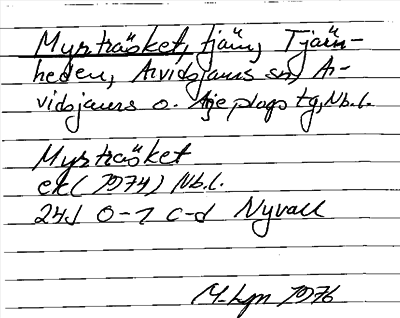 Myrträsket, tjärn, Tjärn-
heden, Arvidsjaurs sn, Ar-
vidsjaurs o. Arjeplogs tg, Nb.l.
Myrträsket
ek (1974) Nb.l.
24J 0-1 c-d Nyvall
1976